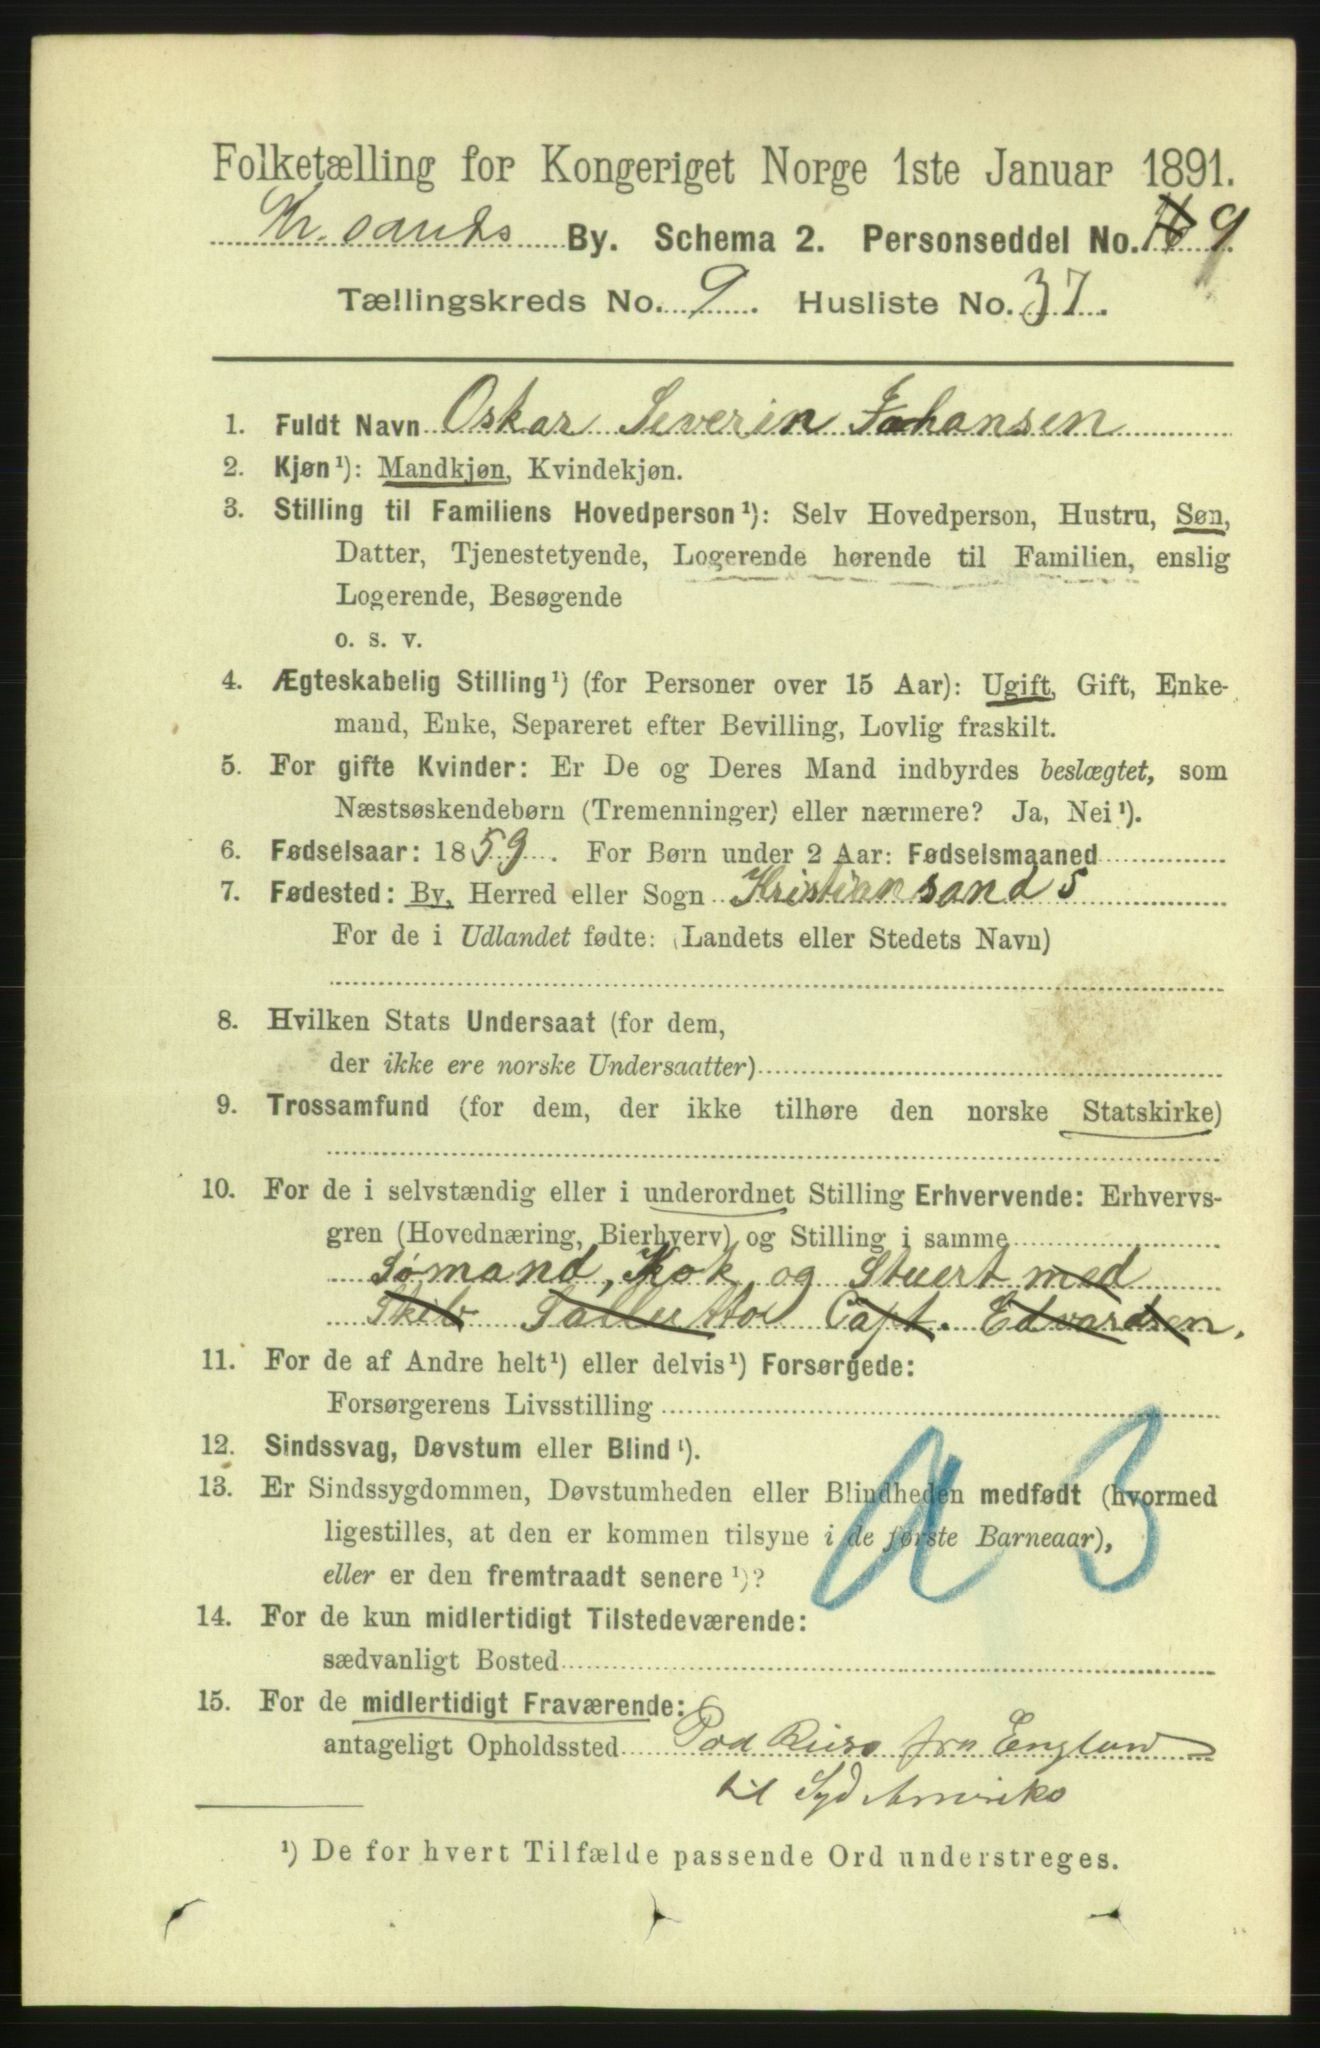 Folketælling for Kongeriget Norge 1ste Januar 1891.
Kr.sands By. Schema 2. Personseddel No. 9.
Tællingskreds No. 9. Husliste No. 37.
1. Fuldt Navn Oskar Severin Johansen
2. Kjøn¹): Mandkjøn, Kvindekjøn.
3. Stilling til Familiens Hovedperson¹): Selv Hovedperson, Hustru, Søn,
Datter, Tjenestetyende, Logerende hørende til Familien, enslig
Logerende, Besøgende
o. s. v.
4. Ægteskabelig Stilling¹) (for Personer over 15 Aar): Ugift, Gift, Enke-
mand, Enke, Separeret efter Bevilling, Lovlig fraskilt.
5. For gifte Kvinder: Er De og Deres Mand indbyrdes beslægtet, som
Næstsøskendebørn (Tremenninger) eller nærmere? Ja, Nei¹).
6. Fødselsaar: 1859. For Børn under 2 Aar: Fødselsmaaned
7. Fødested: By, Herred eller Sogn Kristiansand S
For de i Udlandet fødte: (Landets eller Stedets Navn)
8. Hvilken Stats Undersaat (for dem,
der ikke ere norske Undersaatter)
9. Trossamfund (for dem, der ikke tilhøre den norske Statskirke)
10. For de i selvstændig eller i underordnet Stilling Erhvervende: Erhvervs-
gren (Hovednæring, Bierhverv) og Stilling i samme
Sømand, Kok og Stuert med
Skib Capt. Edvardsen.
11. For de af Andre helt¹) eller delvis¹) Forsørgede:
Forsørgerens Livsstilling
12. Sindssvag, Døvstum eller Blind¹).
13. Er Sindssygdommen, Døvstumheden eller Blindheden medfødt (hvormed
ligestilles, at den er kommen tilsyne i de første Barneaar),
eller er den fremtraadt senere¹)?
14. For de kun midlertidigt Tilstedeværende:
sædvanligt Bosted
15. For de midlertidigt Fraværende:
antageligt Opholdssted Paa Reise fra England
til Syd Amerika
¹) De for hvert Tilfælde passende Ord understreges.